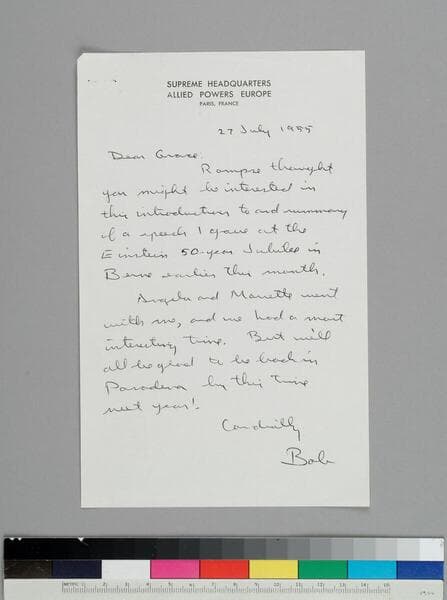 SUPREME HEADQUARTERS
ALLIED POWERS EUROPE
PARIS, FRANCE
27 July 1955
Dear Grace:
Rompse thought
you might be interested in
this introduction to and summary
of a speech I gave at the
Einstein 50-year Jubilee in
Berne earlier this month.
Angela and Mariette went
with me, and we had a most
interesting time. But we'll
all be glad to be back in
Pasadena by this time
next year!
Cordially
Bob
METRIC 1 2 3 4 5 6 7 8 9 10 11 12 13 14 15